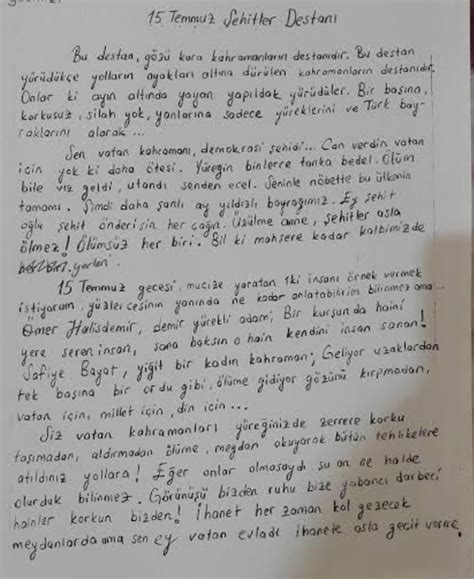 15 Temmuz Şehitler Destanı
Bu destan, gözü kara kahramanların destanıdır. Bu destan
yürüdükçe yolların ayakları altına dürülen kahramanların destanıdır.
Onlar ki ayın altında yayan yapıldak yürüdüler. Bir başına,
korkusuz, silah yok, yanlarına sadece yüreklerini ve Türk bay-
raklarını alarak...
Sen vatan kahramanı, demokrasi şehidi... Can verdin vatan
için yok ki daha ötesi. Yüreğin binlerce tanka bedel. Ölüm
bile vız geldi, utandı senden ecel. Seninle nöbette bu ülkenin
tamamı. Şimdi daha şanlı ay yıldızlı bayrağımız. Ey şehit
oğlu şehit önderisin her çağın. Üzülme anne, şehitler asla
ölmez! Ölümsüz her biri. Bil ki mahşere kadar kalbimizde
yerleri.
15 Temmuz gecesi, mucize yaratan iki insanı örnek vermek
istiyorum, yüzlercesinin yanında ne kadar anlatabilirim bilinmez ama...
Ömer Halisdemir, demir yürekli adam; Bir kurşunda haini
yere seren insan, sana baksın o hain kendini insan sanan!
Safiye Bayat, yiğit bir kadın kahraman; Geliyor uzaklardan
tek başına bir ordu gibi, ölüme gidiyor gözünü kırpmadan,
vatan için, millet için, din için...
Siz vatan kahramanları yüreğinizde zerrece korku
taşımadan, aldırmadan ölüme, meydan okuyarak bütün tehlikelere
atıldınız yollara! Eğer onlar olmasaydı şu an ne halde
olurduk bilinmez. Görünüşü bizden ruhu bize yabancı darbeci
hainler korkun bizden! İhanet her zaman kol gezecek
meydanlarda ama sen ey vatan evladı ihanete asla geçit verme.